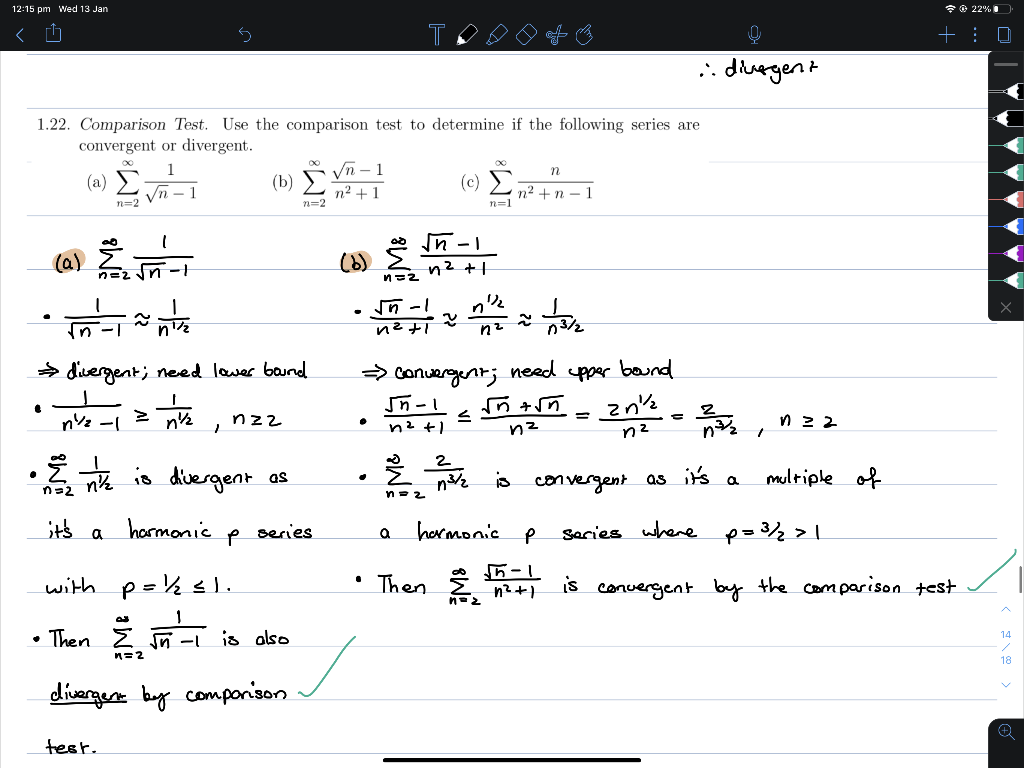 12:15 pm Wed 13 Jan 22%
∴ divergent
1.22. Comparison Test. Use the comparison test to determine if the following series are
convergent or divergent.
(a) ∑_{n=2}^{∞} 1/(√n − 1) (b) ∑_{n=2}^{∞} (√n − 1)/(n² + 1) (c) ∑_{n=1}^{∞} n/(n² + n − 1)
(a) ∑_{n=2}^{∞} 1/(√n − 1)
• 1/(√n − 1) ≈ 1/n^{1/2}
⇒ divergent; need lower bound
• 1/(n^{1/2} − 1) ≥ 1/n^{1/2} , n ≥ 2
• ∑_{n=2}^{∞} 1/n^{1/2} is divergent as
it's a harmonic p series
with p = 1/2 ≤ 1.
• Then ∑_{n=2}^{∞} 1/(√n − 1) is also
divergent by comparison
test.
(b) ∑_{n=2}^{∞} (√n − 1)/(n² + 1)
• (√n − 1)/(n² + 1) ≈ n^{1/2}/n² ≈ 1/n^{3/2}
⇒ convergent; need upper bound
• (√n − 1)/(n² + 1) ≤ (√n + √n)/n² = 2n^{1/2}/n² = 2/n^{3/2} , n ≥ 2
• ∑_{n=2}^{∞} 2/n^{3/2} is convergent as it's a multiple of
a harmonic p series where p = 3/2 > 1
• Then ∑_{n=2}^{∞} (√n − 1)/(n² + 1) is convergent by the comparison test
14
/
18